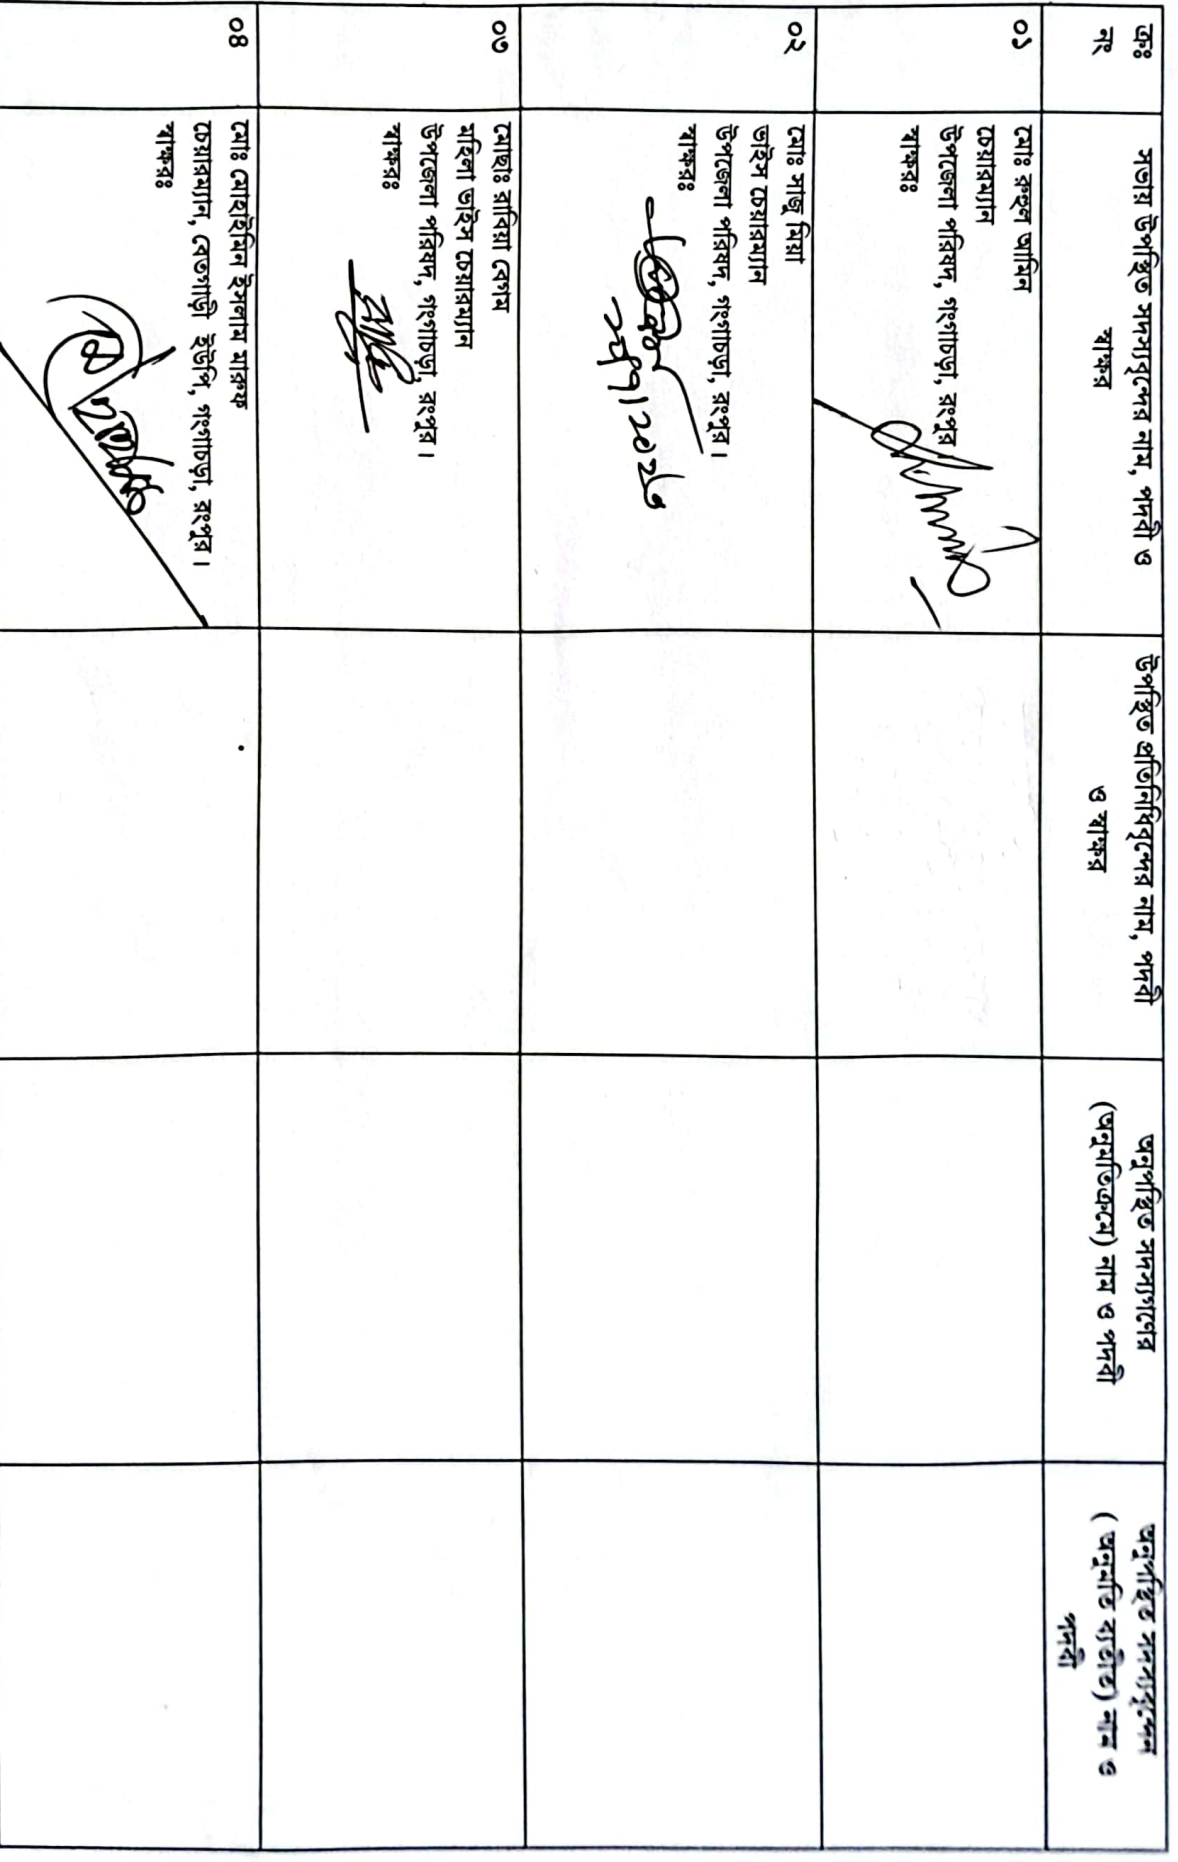 ক্রঃ
নং
সভায় উপস্থিত সদস্যবৃন্দের নাম, পদবী ও
স্বাক্ষর
উপস্থিত প্রতিনিধিবৃন্দের নাম, পদবী
ও স্বাক্ষর
অনুপস্থিত সদস্যগণের
(অনুমতিক্রমে) নাম ও পদবী
অনুপস্থিত সদস্যবৃন্দের
( অনুমতি ব্যতীত) নাম ও
পদবী
০১
মোঃ রুহুল আমিন
চেয়ারম্যান
উপজেলা পরিষদ, গংগাচড়া, রংপুর।
স্বাক্ষরঃ
০২
মোঃ সাজু মিয়া
ভাইস চেয়ারম্যান
উপজেলা পরিষদ, গংগাচড়া, রংপুর।
স্বাক্ষরঃ
০৩
মোছাঃ রাবিয়া বেগম
মহিলা ভাইস চেয়ারম্যান
উপজেলা পরিষদ, গংগাচড়া, রংপুর।
স্বাক্ষরঃ
০৪
মোঃ মোহাইমিন ইসলাম মারুফ
চেয়ারম্যান, বেতগাড়ী ইউপি, গংগাচড়া, রংপুর।
স্বাক্ষরঃ